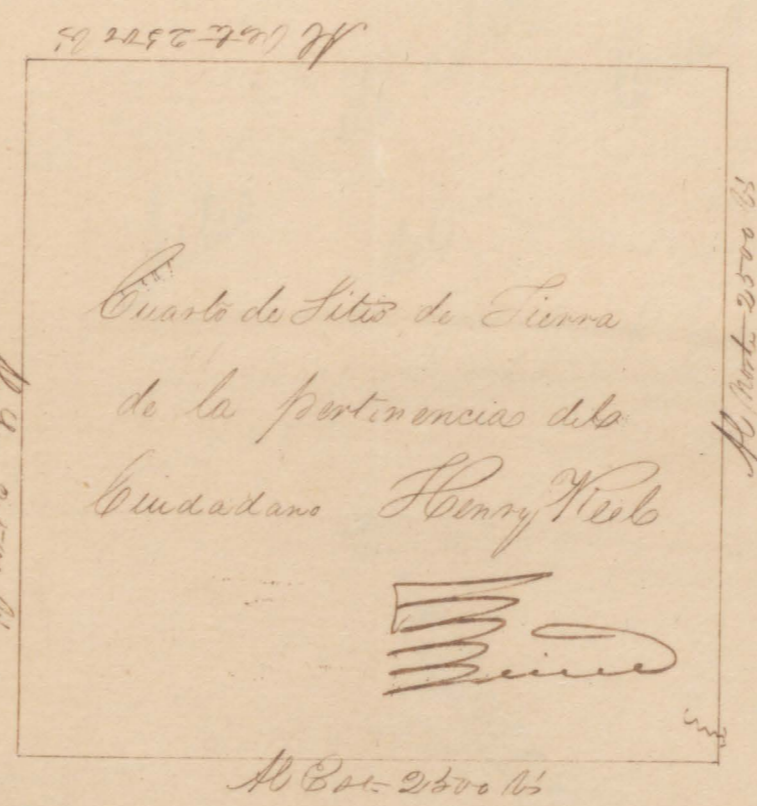 Al Oeste 2500 vs
Cuarto de Sitio de Tierra
de la pertinencia del
Ciudadano Henry
Al Norte 2500 vs
Al Este 2500 vs